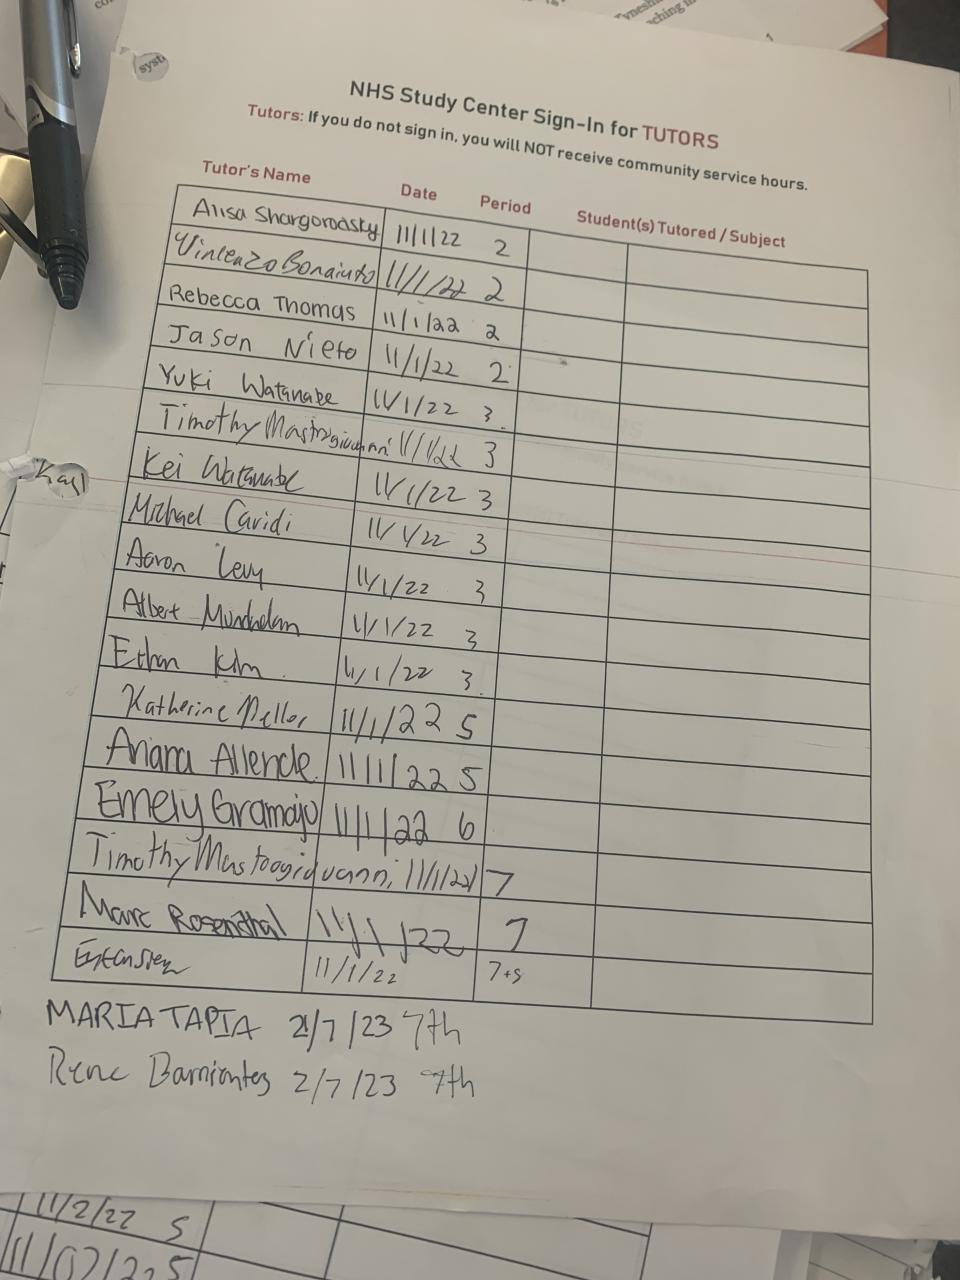 syst
NHS Study Center Sign-In for TUTORS
Tutors: If you do not sign in, you will NOT receive community service hours.
Tutor's Name Date Period Student(s) Tutored / Subject
Alisa Shargorodsky 11/1/22 2
Vincenzo Bonaiuto 11/1/22 2
Rebecca Thomas 11/1/22 2
Jason Nieto 11/1/22 2
Yuki Watanabe 11/1/22 3
Timothy Mastrogiovanni 11/1/22 3
Kei Watanabe 11/1/22 3
Michael Caridi 11/1/22 3
Aaron Levy 11/1/22 3
Albert 11/1/22 3
Ethan Kim 11/1/22 3
Katherine 11/1/22 5
Ariana Allende 11/1/22 5
Emely Gramajo 11/1/22 6
Timothy Mastrogiovanni 11/1/22 7
Marc Rosenthal 11/1/22 7
11/1/22 7+5
MARIA TAPIA 2/7/23 7th
Rene Barrientos 2/7/23 7th
11/2/22 5
11/02/22 5